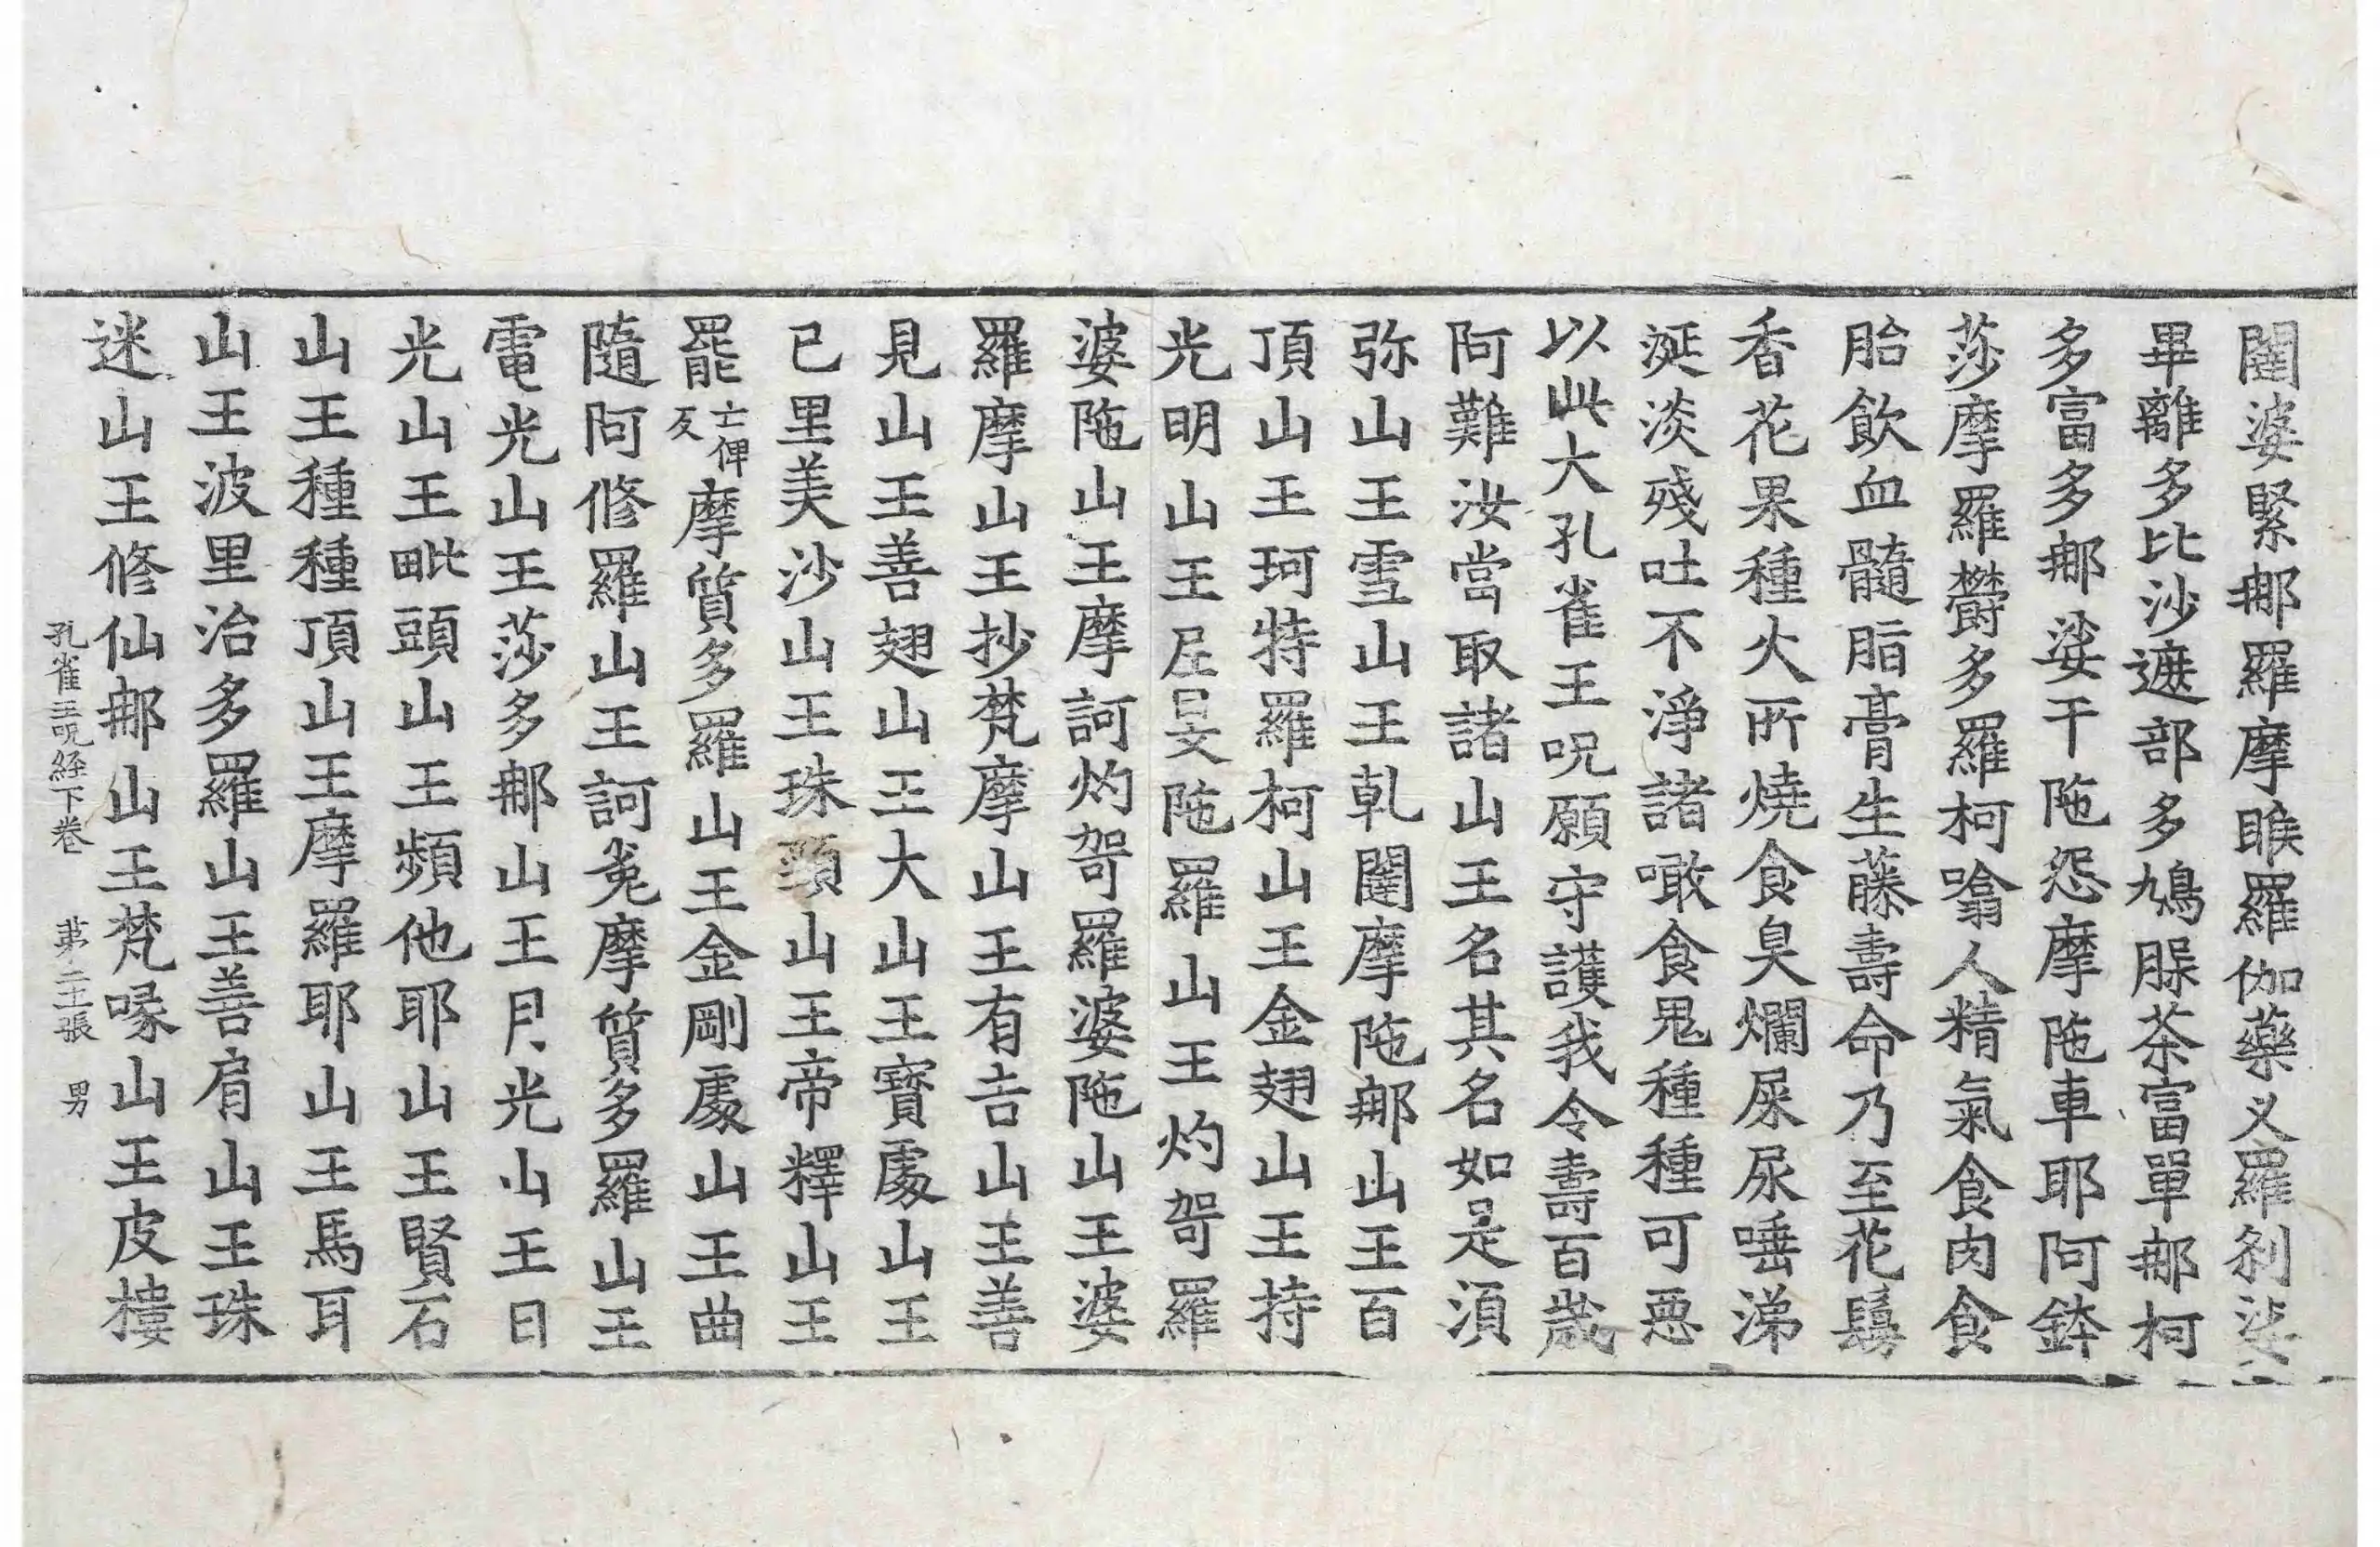 闥婆緊那羅摩睺羅伽藥叉羅剎娑
畢離多比沙遮部多鳩腺茶富單那柯
多富多那娑干陁怨摩陁車耶阿鉢
莎摩羅欝多羅柯噏人精氣食肉食
胎飲血髓脂膏生藤壽命乃至花鬘
香花果種火所燒食臭爛屎尿唾涕
涎淡殘吐不淨諸噉食鬼種種可惡
以此大孔雀王呪願守護我令壽百歲
阿難汝當取諸山王名其名如是須
弥山王雪山王乹闥摩陁那山王百
頂山王珂特羅柯山王金翅山王持
光明山王尼旻陁羅山王灼哿羅
婆陁山王摩訶灼哿羅婆陁山王婆
羅摩山王抄梵摩山王有吉山王善
見山王善翅山王大山王寶處山王
已里美沙山王珠頭山王帝釋山王
罷亡俾反摩質多羅山王金剛處山王曲
隨阿修羅山王訶㝹摩質多羅山王
電光山王莎多那山王月光山王日
光山王毗頭山王頻他耶山王賢石
山王種種頂山王摩羅耶山王馬耳
山王波里治多羅山王善肩山王珠
迷山王修仙那山王梵喙山王皮摟
孔雀王呪經下卷 第二十張 男